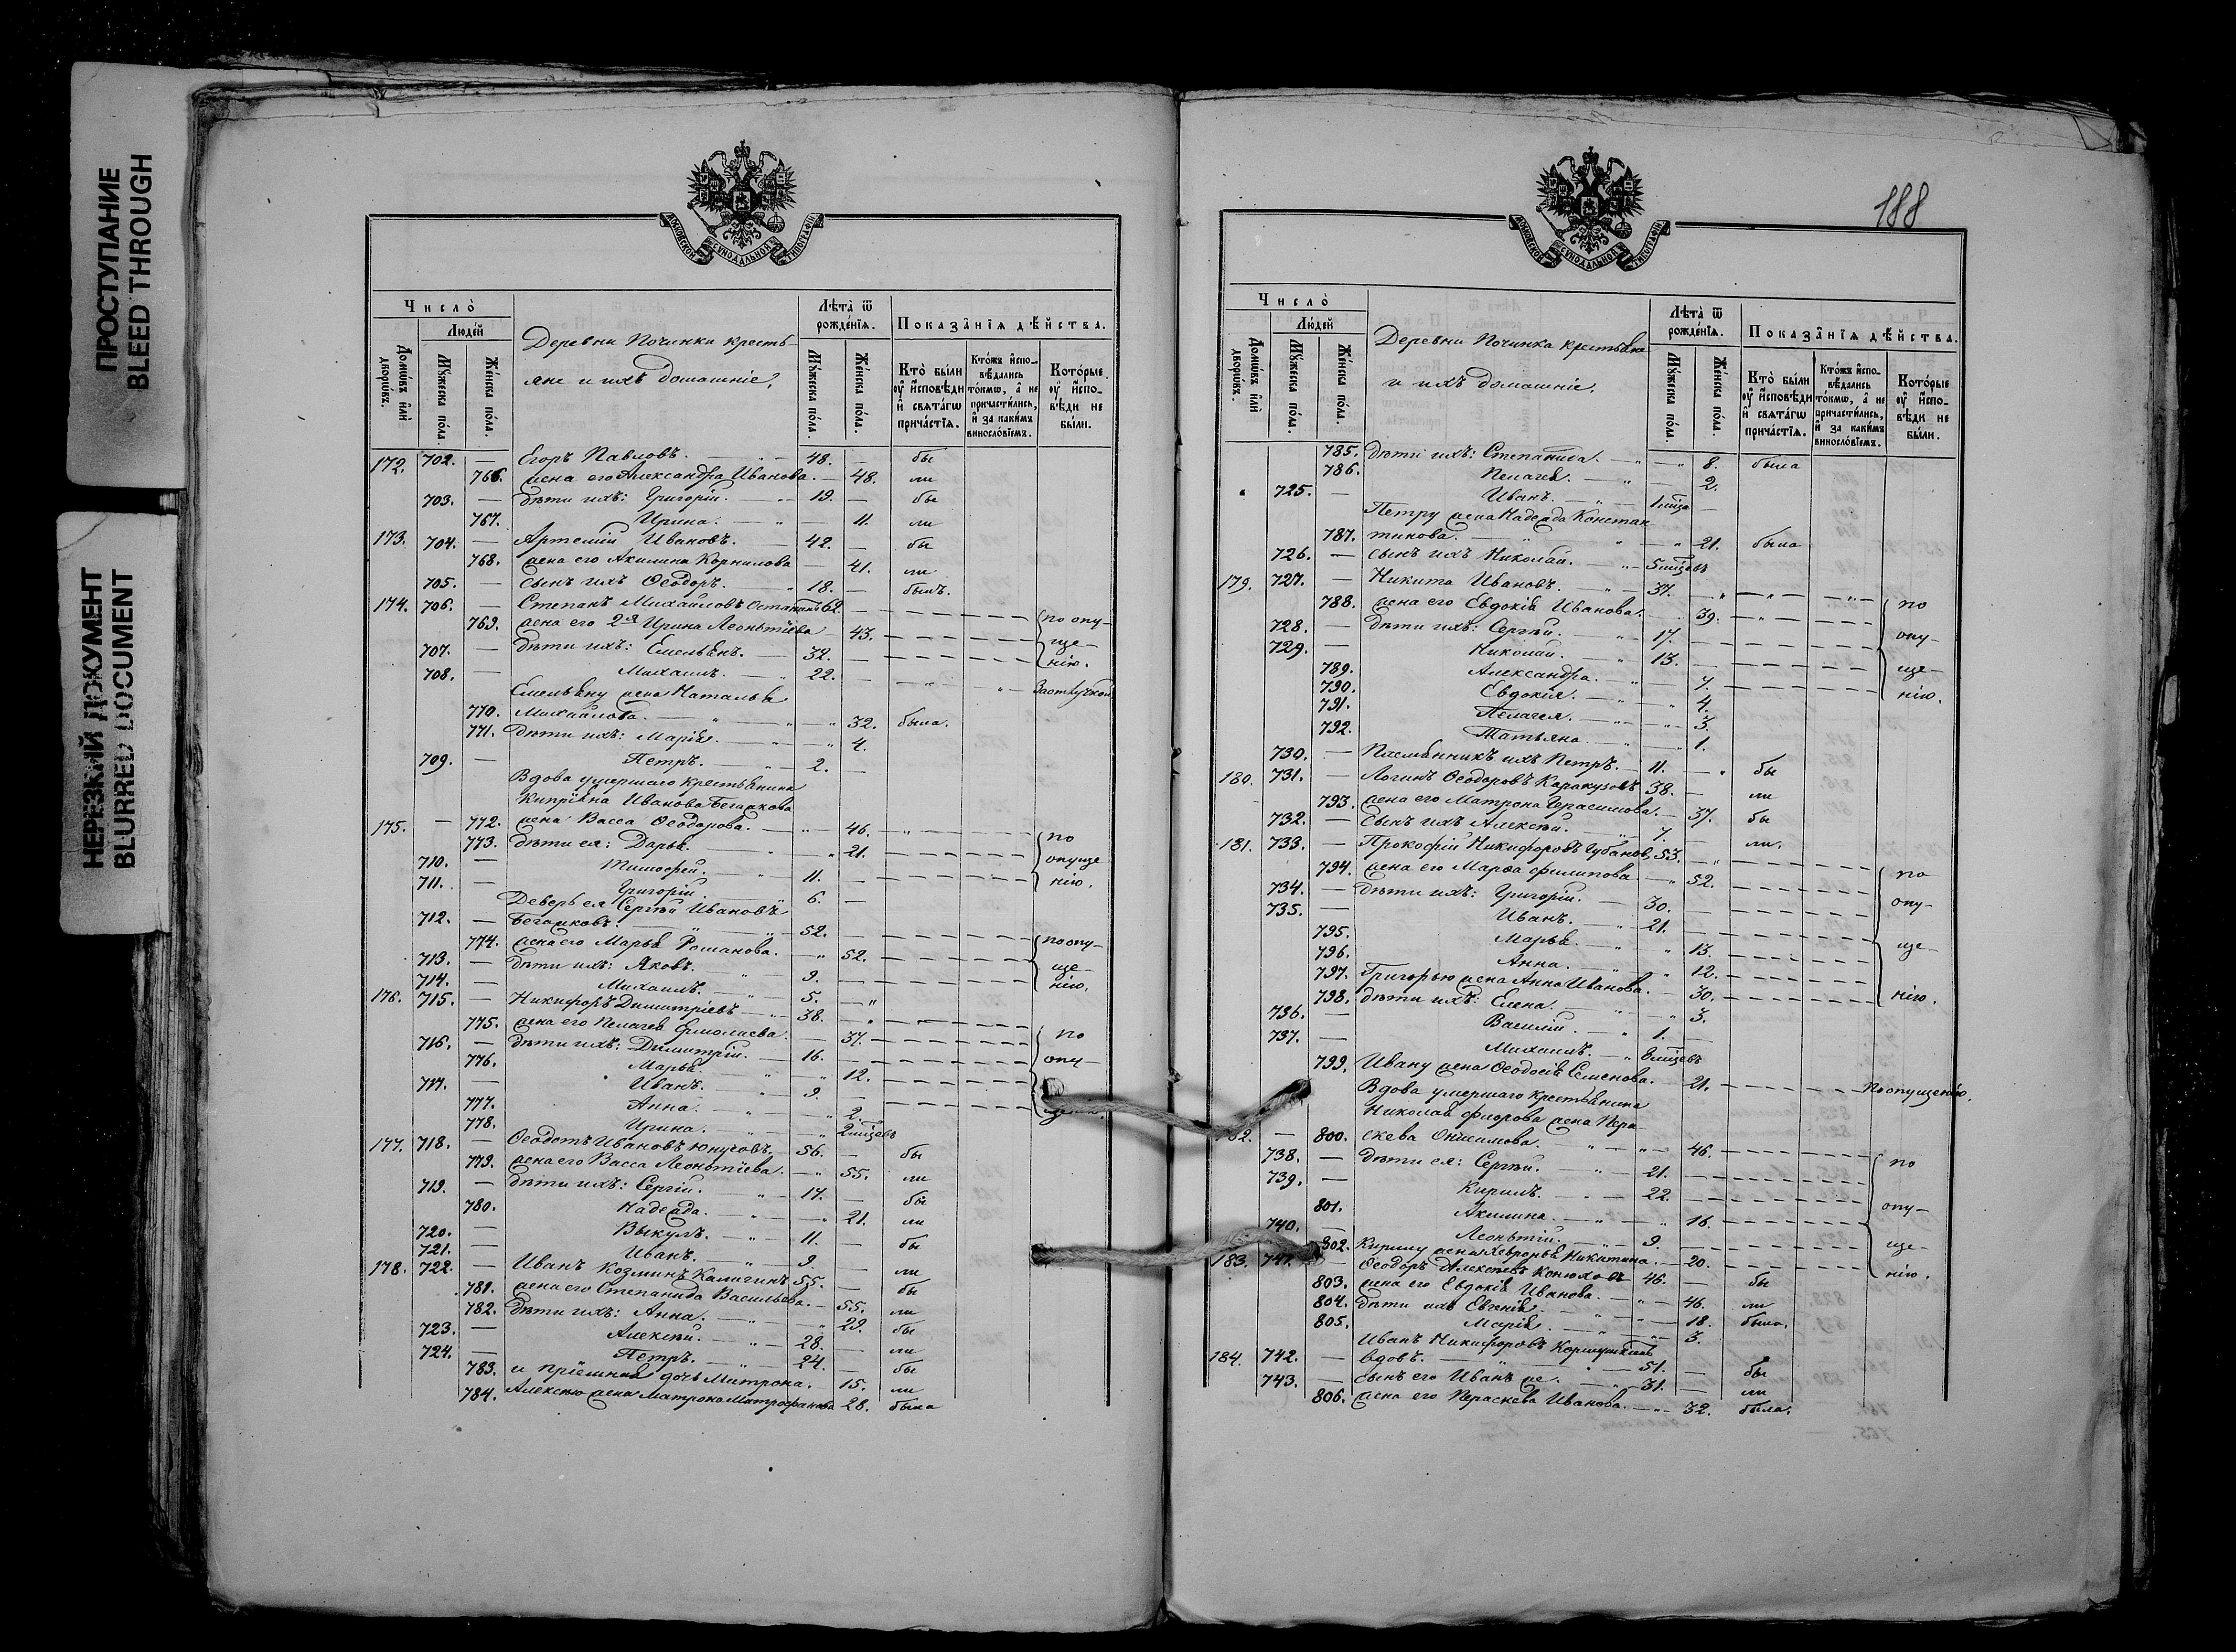 ПРОСТУПАНИЕ
BLEED THROUGH
НЕРЕЗКИЙ ДОКУМЕНТ
BLURRED DOCUMENT
МОСКОВСКОЙ СѴНОДАЛЬНОЙ ТИПОГРАФІИ
Число̀
Людéй
Домѡ́въ и҆лѝ дворѡ́въ.
Мꙋ́жеска по́ла.
Же́нска по́ла.
Деревни Починки кресть
яне и ихъ домашніе,
Лѣта̀ ѿ рожде́нїѧ.
Мꙋ́жеска по́ла.
Же́нска по́ла.
Показа̑нїѧ дѣ́йства.
Кто̀ бы́ли ᲂу҆ и҆спо́вѣди и҆ свѧта́гѡ прича́стїѧ.
Кто́жъ и҆спо-вѣ́дались то́кмѡ, а҆ не причасти́лись, и҆ за каки́мъ винословїемъ.
Кото́рые ᲂу҆ и҆спо-вѣди не бы́ли.
172. 702. — Егоръ Павловъ. — 48. — бы
766. жена его Александра Иванова. — 48. ли
703. — дѣти ихъ: Григорій. — 19. — бы
767. Ирина. — 11. ли
173. 704. — Артемій Ивановъ. — 42. — бы
768. жена его Акилина Корнилова — 41. ли
705. — сынъ ихъ Ѳеодоръ. — 18. — былъ.
174. 706. — Степанъ Михайловъ Останинъ 62 — по опу-
769. жена его 2я Ирина Леонтіева — 43. — ще-
707. — дѣти ихъ: Емельянъ. — 32. — нію.
708. — Михаилъ. — 22. — За отлучкой
Емельяну жена Наталья
770. Михайлова. — 32. была.
771. Дѣти ихъ: Марія. — 4.
709. — Петръ. — 2. —
Вдова умершаго крестьянина
Кипріяна Иванова Бегашкова
175. — 772. жена Васса Ѳеодорова. — 46. — по
773. дѣти ея: Дарья. — 21. — опуще
710. — Тимофей. — 11. — нію.
711. — Григорій — 6. —
Деверь ея Сергѣй Ивановъ
712. — Бегашковъ. — 52. — по опу-
774. жена его Марья Романова. — 52. — ще-
713. — дѣти ихъ: Яковъ. — 9. — нію.
714. — Михаилъ. — 5. —
176. 715. — Никифоръ Димитріевъ — 38. —
775. жена его Пелагея Ермолаева. — 37. — по
716. — дѣти ихъ: Димитрій. — 16. — опу-
776. Марья. — 12. —
717. — Иванъ. — 9. —
777. Анна. — 2.
778. Ирина. — 2 мѣсцевъ
177. 718. — Ѳеодотъ Ивановъ Юнусовъ. — 56. — бы
779. жена его Васса Леонтіева. — 55. ли
719. — дѣти ихъ: Сергій. — 17. — бы
780. Надежда. — 21. ли
720. — Викулъ. — 11. — бы
721. — Иванъ. — 9. — ли
178. 722. — Иванъ Козминъ Калигинъ 55. — бы
781. жена его Степанида Васильева. — 55. ли
782. дѣти ихъ: Анна. — 29. бы
723. — Алексѣй. — 28. — ли
724. — Петръ. — 24. — бы
783. и пріемная дочь Матрона. 15. ли
784. Алексѣю жена Матрона Митрофанова 28. была
188
МОСКОВСКОЙ СѴНОДАЛЬНОЙ ТИПОГРАФІИ
Число̀
Лю́дей
Домѡ́въ и҆лѝ дворѡ́въ.
Мꙋ́жеска по́ла.
Же́нска по́ла.
Деревни Починка крестьяне
и ихъ домашніе,
Лѣта̀ ѿ рожде́нїѧ.
Мꙋ́жеска по́ла.
Же́нска по́ла.
Показа̑нїѧ дѣ́йства.
Кто̀ бы́ли ᲂу҆ и҆спо́вѣди и҆ свѧта́гѡ прича́стїѧ.
Кто́жъ и҆спо-вѣ́дались то́кмѡ, а҆ не причасти́лись, и҆ за каки́мъ винословїемъ.
Кото́рые ᲂу҆ и҆спо-вѣди не бы́ли.
785. дѣти ихъ: Степанида. — 8. была
786. Пелагея. — 2.
725. — Иванъ. — 1 мѣца —
Петру жена Надежда Констан
787. тинова. — 21. была
726. — сынъ ихъ Николай. — 5 мѣсцевъ
179. 727. — Никита Ивановъ. — 37. — по
788. жена его Евдокія Иванова. — 39. —
728. — дѣти ихъ: Сергѣй. — 17. — опу-
729. — Николай. — 13. —
789. Александра. — 7. — ще-
790. Евдокія. — 4. нію.
791. Пелагея. — 3.
792. Татьяна. — 1.
730. — Племянникъ ихъ Петръ. — 11. — бы
180. 731. — Логинъ Ѳеодоровъ Каракузовъ 38. — ли
793. жена его Матрона Герасимова. — 37. бы
732. — сынъ ихъ Алексѣй. — 7. — ли.
181. 733. — Прокофій Никифоровъ Губановъ 53. — по
794. жена его Марѳа Филипова — 52. —
734. — дѣти ихъ: Григорій. — 30. — опу-
735. — Иванъ. — 21. —
795. Марья. — 13. — ще-
796. Анна. — 12. —
797. Григорью жена Анна Иванова. — 30. — нію.
798. дѣти ихъ: Елена. — 3.
736. — Василій. — 1. —
737. — Михаилъ. — 8 мѣсцевъ
799. Ивану жена Ѳеодосія Семенова. — 21. — по опущенію.
Вдова умершаго крестьянина
Николая Фирова жена Пера-
182. — 800. скева Онисимова. — 46. —
738. — дѣти ея: Сергѣй. — 21. — по
739. — Кирилъ. — 22. —
801. Акилина. — 16. — опу-
740. — Леонтій. — 9. —
802. Кирилу жена Хеврорья Никитина. — 20. — ще-
183. 741. — Ѳеодоръ Алексѣевъ Конюховъ 46. — бы нію.
803. жена его Евдокія Иванова. — 46. ли
804. дѣти ихъ Евгенія. — 18. была.
805. Марія. — 3.
Иванъ Никифоровъ
184. 742. — вдовъ. — 51. — бы
743. — сынъ его Иванъ же. — 31. — ли
806. жена его Параскева Иванова. — 32. была.